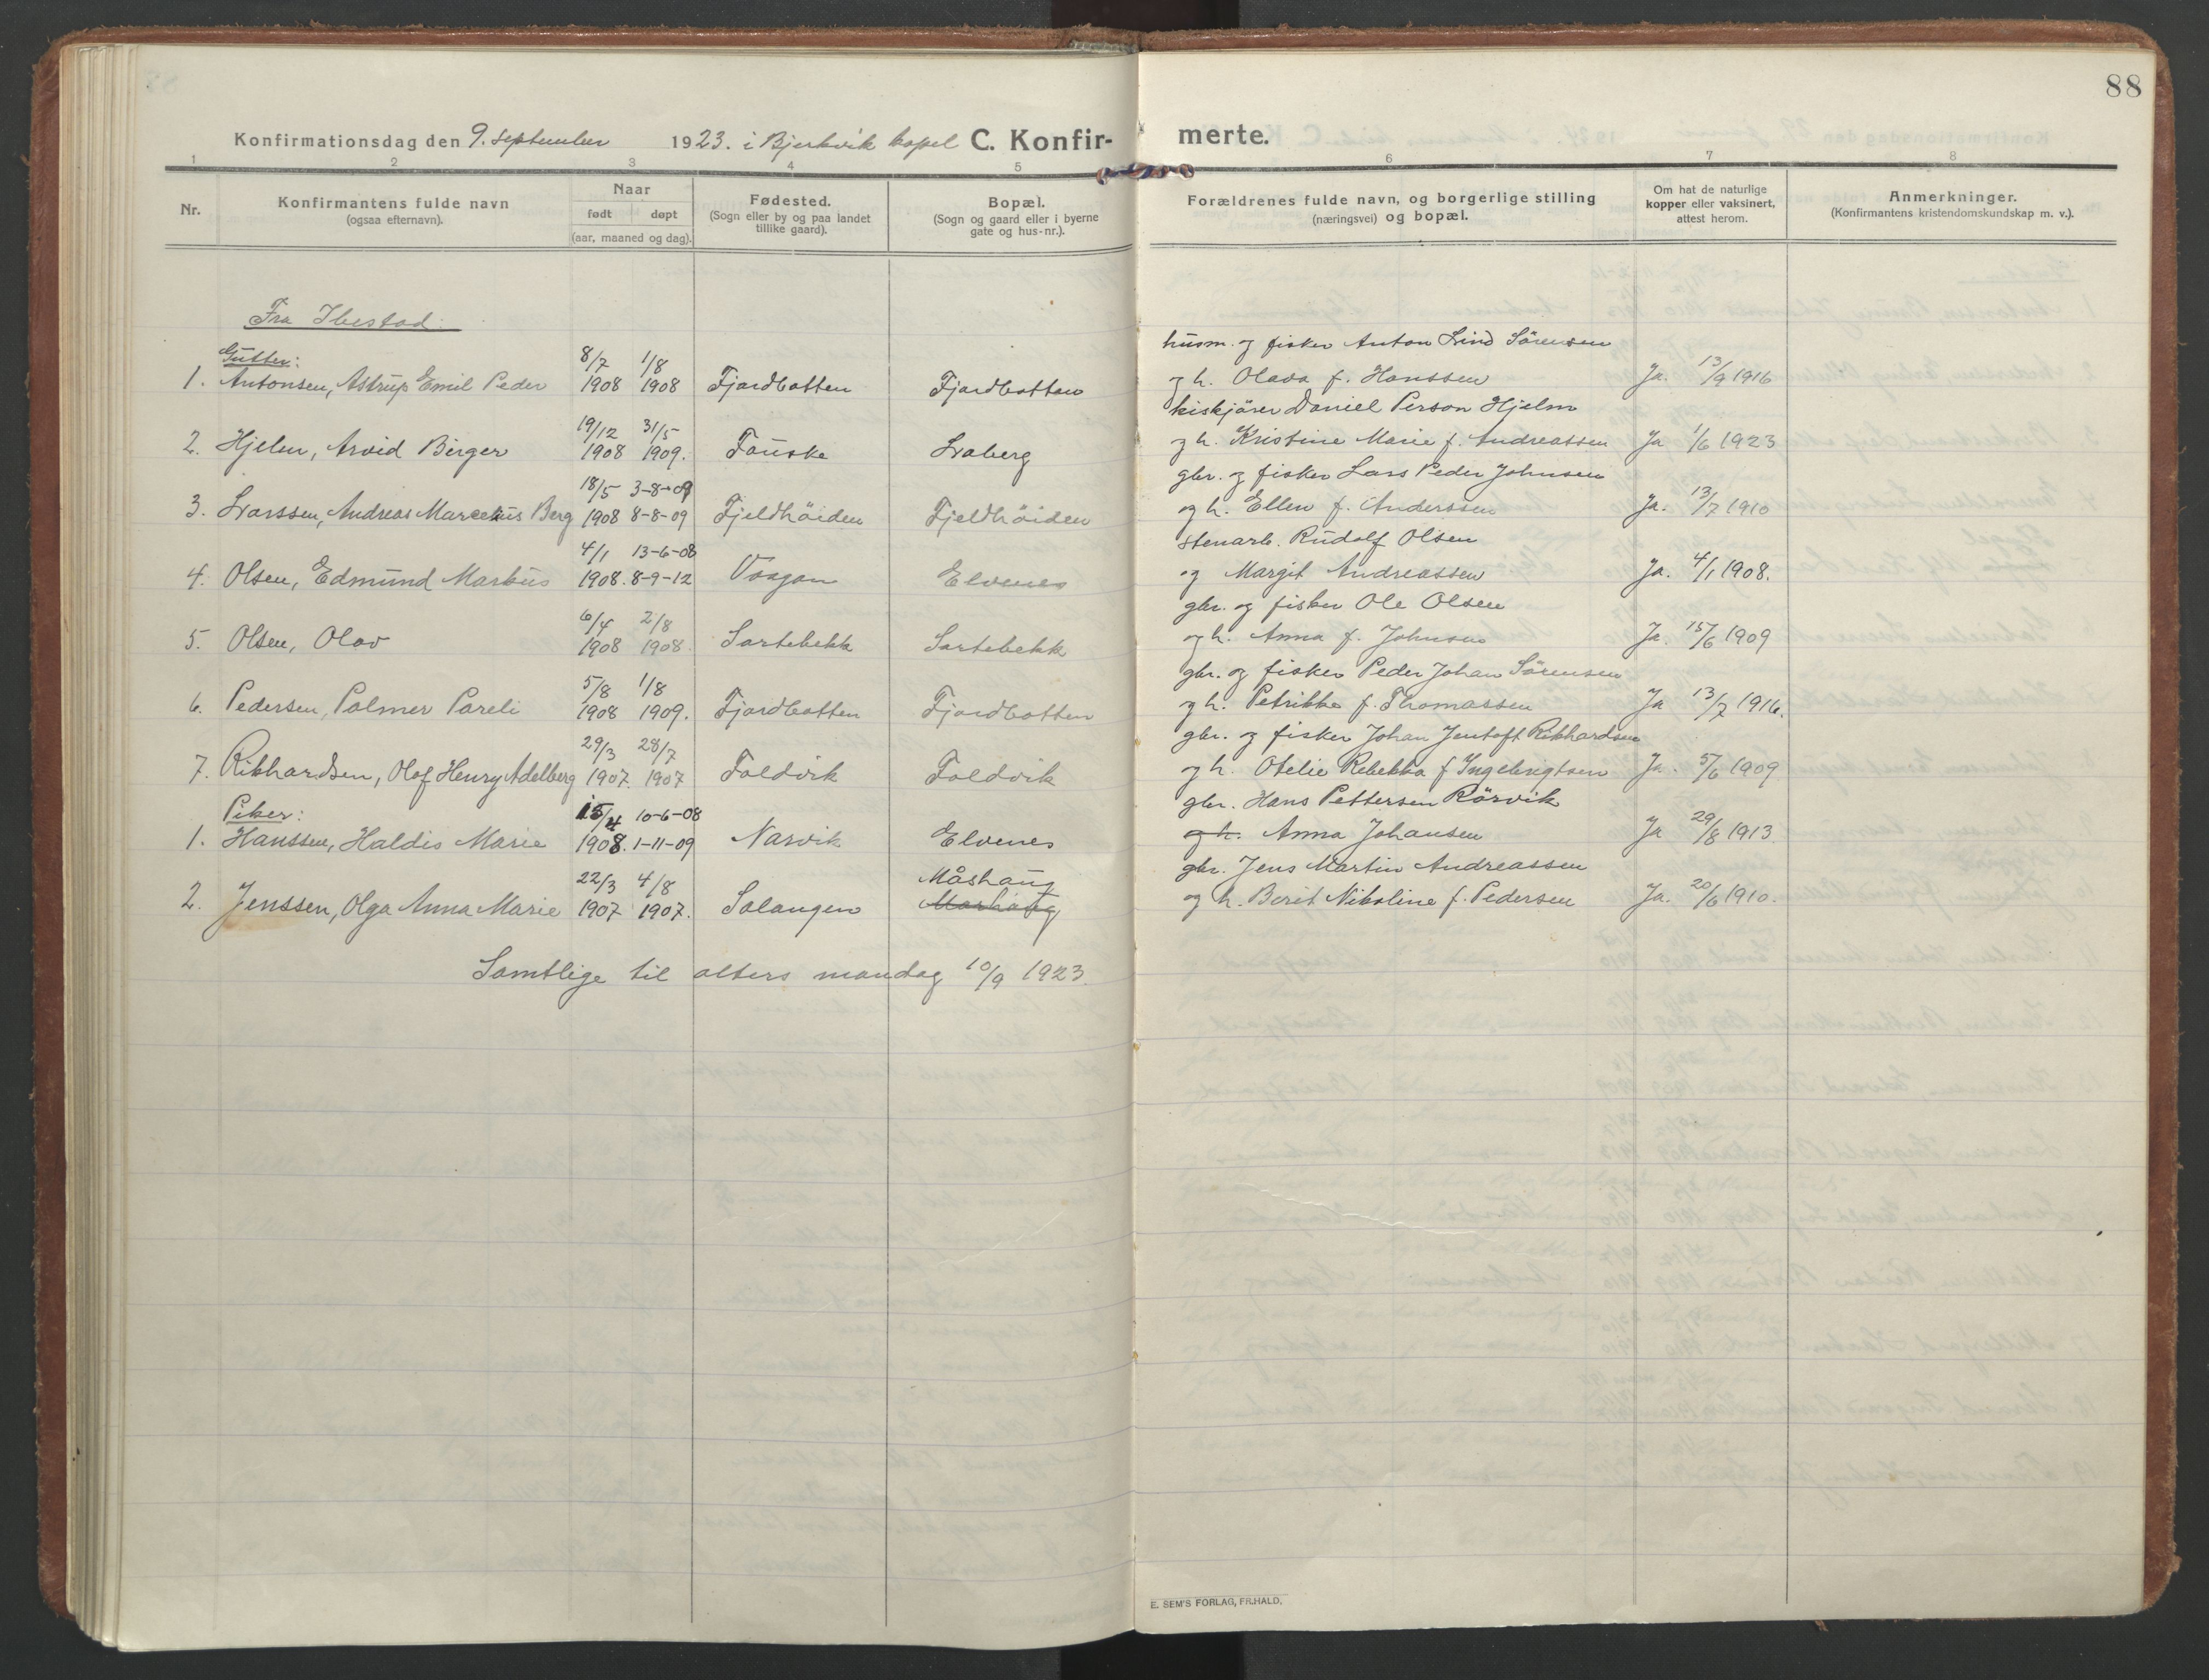 88
Konfirmationsdag den 9. september 1923. i Bjerkvik kapel C. Konfir- merte.
1 2 3 4 5 6 7 8
Nr. Konfirmantens fulde navn (ogsaa efternavn). Naar født døpt (aar, maaned og dag). Fødested. (Sogn eller by og paa landet tillike gaard). Bopæl. (Sogn og gaard eller i byerne gate og hus-nr.). Forældrenes fulde navn, og borgerlige stilling (næringsvei) og bopæl. Om hat de naturlige kopper eller vaksinert, attest herom. Anmerkninger. (Konfirmantens kristendomskundskap m. v.).
Fra Ibestad.
Gutter:
8/7 1/8 husm. og fisker Anton Lind Sörensen
1. Antonsen, Astrup Emil Peder 1908 1908 Fjordbotten Fjordbotten og h. Olava f. Hanssen Ja. 13/9 1916
19/12 31/5 kiskjörer Daniel Person Hjelm
2. Hjelm, Arvid Birger 1908 1909. Fauske Laberg og h. Kristine Marie f. Andreassen Ja 1/6 1923
18/5 3-8-09 gbr. og fisker Lars Peder Johnsen
3. Larssen, Andreas Marcelius Berg 1908 8-8-09 Fjeldhöiden Fjeldhöiden og h. Ellen f. Anderssen Ja. 13/7 1910
4/1 13-6-08 stenarb. Rudolf Olsen
4. Olsen, Edmund Markus 1908. 8-9-12 Vaagan Elvenes og Margit Andreassen Ja. 4/1 1908.
6/4 2/8 gbr. og fisker Ole Olsen
5. Olsen, Olav 1908 1908. Sartebekk Sartebekk og h. Anna f. Johnsen Ja. 15/6 1909
5/8 1/8 gbr. og fisker Peder Johan Sörensen
6. Pedersen, Palmer Pareli 1908 1909. Fjordbotten Fjordbotten og h. Petrikke f. Thomassen Ja 13/7 1916.
29/3 28/7 gbr. og fisker Johan Jentoft Rikhardsen
7. Rikhardsen, Olof Henry Adelberg 1907. 1907 Foldvik Foldvik og h. Otelie Rebekka f Ingebrigtsen Ja. 5/6 1909
Piker:
15/4 10-6-08 gbr. Hans Pettersen Rörvik
1. Hanssen, Haldis Marie 1908. 1-11-09 Narvik Elvenes og h. Anna Johansen Ja 29/8 1913
22/3 4/8 Måshaug gbr. Jens Martin Andreassen
2. Jenssen, Olga Anna Marie 1907 1907. Salangen og h. Berit Nikoline f. Pedersen Ja. 20/6 1910.
Samtlige til alters mandag 10/9 1923.
E. SEM'S FORLAG, FR.HALD.